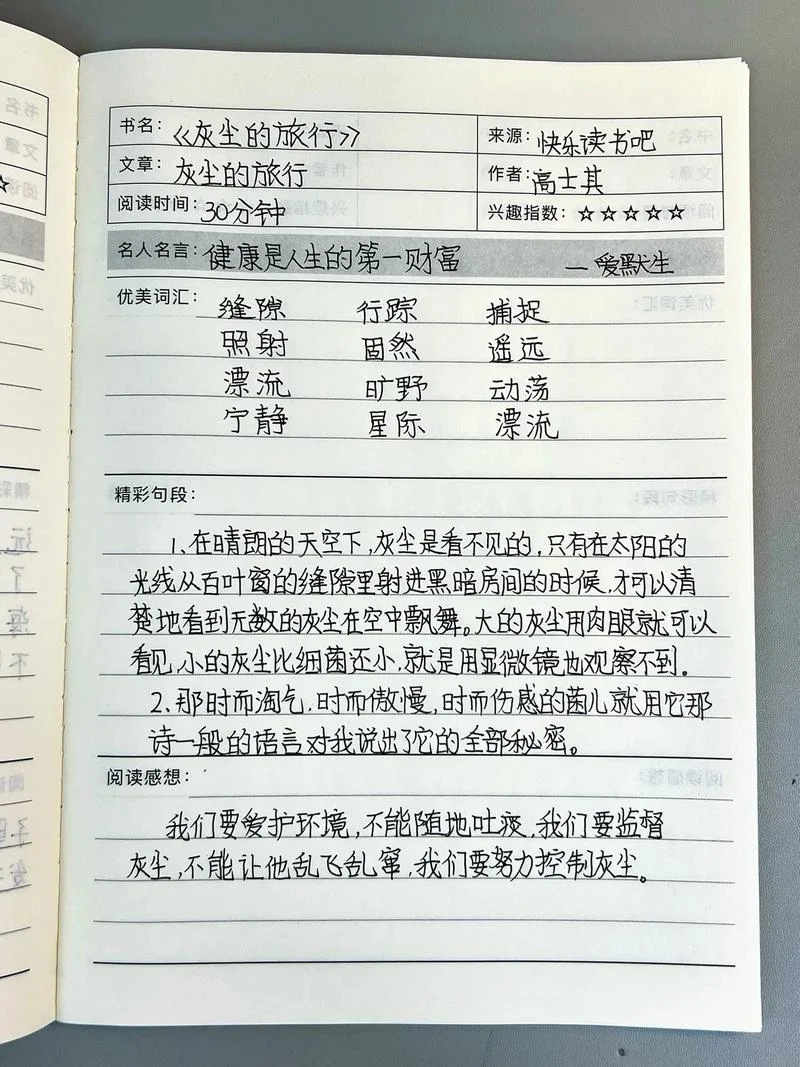 书名：《灰尘的旅行》 来源：快乐读书吧
文章：灰尘的旅行 作者：高士其
阅读时间：30分钟 兴趣指数：☆☆☆☆☆
名人名言：健康是人生的第一财富 — 爱默生
优美词汇：缝隙 行踪 捕捉
照射 固然 遥远
漂流 旷野 动荡
宁静 星际 漂流
精彩句段：
1、在晴朗的天空下,灰尘是看不见的,只有在太阳的
光线从百叶窗的缝隙里射进黑暗房间的时候,才可以清
楚地看到无数的灰尘在空中飘舞。大的灰尘用肉眼就可以
看见,小的灰尘比细菌还小,就是用显微镜也观察不到。
2、那时而淘气,时而傲慢,时而伤感的菌儿就用它那
诗一般的语言对我说出了它的全部秘密。
阅读感想：
我们要爱护环境,不能随地吐痰,我们要监督
灰尘,不能让他乱飞乱窜,我们要努力控制灰尘。